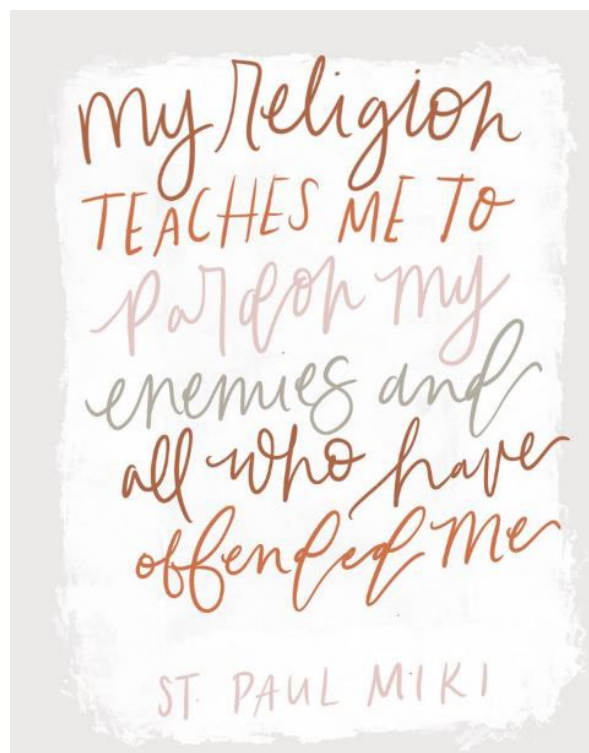 my religion
TEACHES ME TO
pardon my
enemies and
all who have
offended me
ST. PAUL MIKI